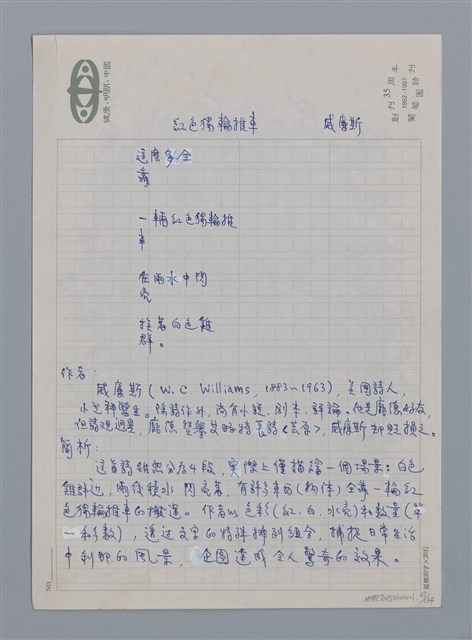 健康・明朗・中國
創刊35周年
1962-1997
葡萄園詩刊
紅色獨輪推車 威廉斯
這麼多全
靠
一輛紅色獨輪推
車
在雨水中閃
亮
挨著白色雞
群。
作者:
威廉斯(W.C. Williams, 1883~1963),美國詩人,
小兒科醫生。除詩作外,尚有小說、劇本、評論。他是龐德好友,
但詩觀迥異,龐德讚譽艾略特長詩<荒原>,威廉斯卻貶損之。
簡析:
這首詩雖然分為4段,實際上僅描繪一個場景:白色
雞群邊,雨後積水閃亮著,有許多東西(物体)全靠一輪紅
色獨輪推車的搬運。作者以色彩(紅、白、水亮)和數量(單
一和多數),透過文字的特殊排列組合,捕捉日常生活
中剎那的風景,企圖達成令人驚奇的效果。
NO.
稿格20字×20行